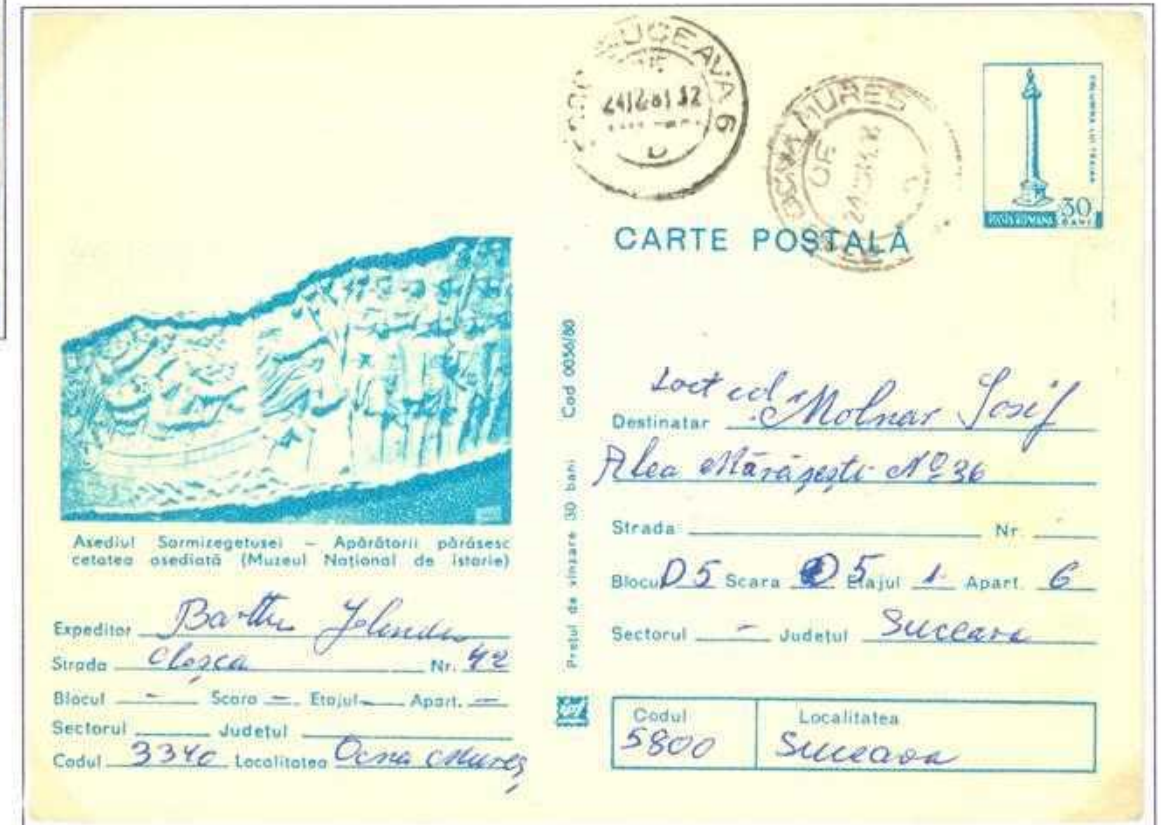 SUCEAVA 6
OCNA MUREȘ
COLUMNA LUI TRAIAN
POSTA ROMANA 30 BANI
CARTE POȘTALĂ
Asediul Sarmizegetusei – Apărătorii părăsesc
cetatea asediată (Muzeul Național de istorie)
Expeditor
Strada Cloșca Nr. 42
Blocul - Scara - Etajul - Apart. -
Sectorul Județul
Codul 3340 Localitatea Ocna Mureș
Prețul de vînzare 30 bani Cod 0056/80
Destinatar Molnar Iosif
Alea Mărășești No 36
Strada Nr.
Blocul D5 Scara Etajul 1 Apart. 6
Sectorul - Județul Suceava
Codul Localitatea
5800 Suceava